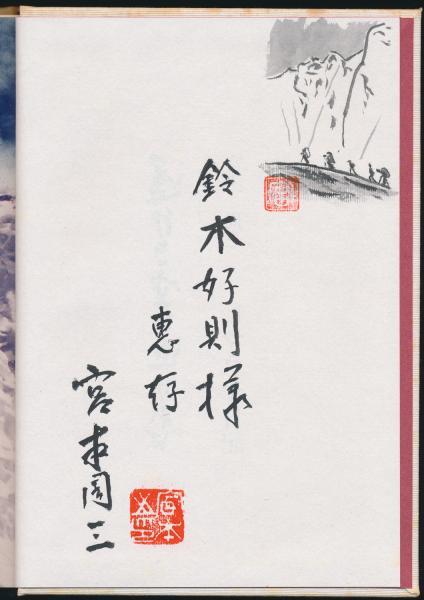 鈴木好則様
恵存
宮本周三